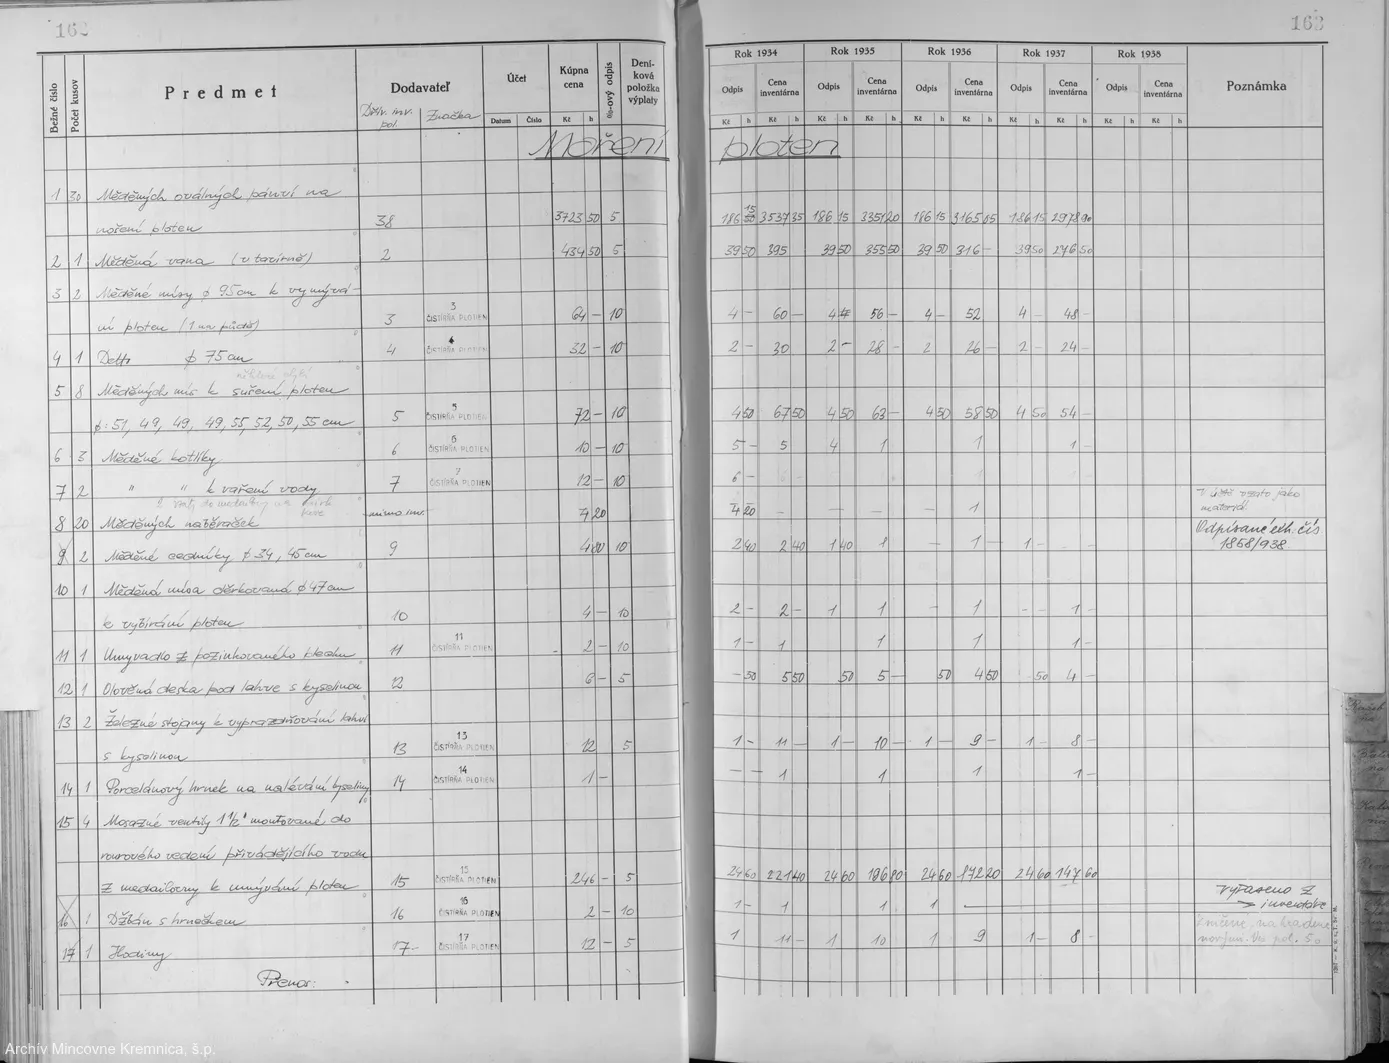 162
Bežné číslo
Počet kusov
Predmet
Dodavateľ
Dřív. inv. pol.
Značka
Účet
Datum
Číslo
Kúpna cena
Kč h
%-ový odpis
Deníková položka výplaty
Moření
1 30 Měděných oválných pánví na
moření ploten 38 3723 50 5
2 1 Měděná vana (v tavírně) 2 434 50 5
3 2 Měděné mísy φ 95 cm k vymývá-
ní ploten (1 na půdě) 3 3 ČISTÍRŇA PLOTIEN 64 – 10
4 1 Detto φ 75 cm 4 4 ČISTÍRŇA PLOTIEN 32 – 10
5 8 Měděných mís k sušení ploten
φ: 51, 49, 49, 49, 55, 52, 50, 55 cm 5 5 ČISTÍRŇA PLOTIEN 72 – 10
6 3 Měděné kotlíky 6 6 ČISTÍRŇA PLOTIEN 10 – 10
7 2 " " k vaření vody 7 7 ČISTÍRŇA PLOTIEN 12 – 10
8 20 Měděných naběraček mimo inv. 7 20
9 2 Měděné cedníky φ 34, 45 cm 9 4 80 10
10 1 Měděná mísa děrkovaná φ 47 cm
k vybírání ploten 10 4 – 10
11 1 Umyvadlo z pozinkovaného plechu 11 11 ČISTÍRŇA PLOTIEN 2 – 10
12 1 Olověná deska pod lahve s kyselinou 12 6 – 5
13 2 Železné stojany k vyprazdňování lahví
s kyselinou 13 13 ČISTÍRŇA PLOTIEN 12 5
14 1 Porcelánový hrnek na nalévání kyseliny 14 14 ČISTÍRŇA PLOTIEN 1 –
15 4 Mosazné ventily 1 1/2" montované do
rourového vedení přivádějícího vodu
z medailovny k umývání ploten 15 15 ČISTÍRŇA PLOTIEN 246 – 5
16 1 Džbán s hrnečkem 16 16 ČISTÍRŇA PLOTIEN 2 – 10
17 1 Hodiny 17 – 17 ČISTÍRŇA PLOTIEN 12 – 5
Prenos:
163
Rok 1934 Rok 1935 Rok 1936 Rok 1937 Rok 1938
Odpis Cena inventárna Odpis Cena inventárna Odpis Cena inventárna Odpis Cena inventárna Odpis Cena inventárna Poznámka
Kč h Kč h Kč h Kč h Kč h Kč h Kč h Kč h Kč h Kč h
ploten
186 15 3537 35 186 15 3351 20 186 15 3165 05 186 15 2978 90
39 50 395 39 50 355 50 39 50 316 – 39 50 276 50
4 – 60 – 4 56 – 4 – 52 4 – 48 –
2 – 30 2 – 28 – 2 26 – 2 – 24 –
4 50 67 50 4 50 63 – 4 50 58 50 4 50 54 –
5 – 5 4 1 1 1 –
6 –
7 20 – – – 1
V účtě vzato jako materiál
2 40 2 40 1 40 1 – 1 – 1 –
Odpísané čís
1858/938
2 – 2 – 1 1 – 1 – – 1 –
1 – 1 1 1 1 –
– 50 5 50 50 5 – 50 4 50 50 4 –
1 – 11 – 1 – 10 – 1 – 9 – 1 – 8 –
– – 1 1 1 1 –
24 60 221 40 24 60 196 80 24 60 172 20 24 60 147 60
1 – 1 1 1
vyřazeno z
inventáře
1 11 – 1 10 1 9 1 – 8 –
zničené, nahradené
novými. Vo pol. 50
Archív Mincovne Kremnica, š.p.